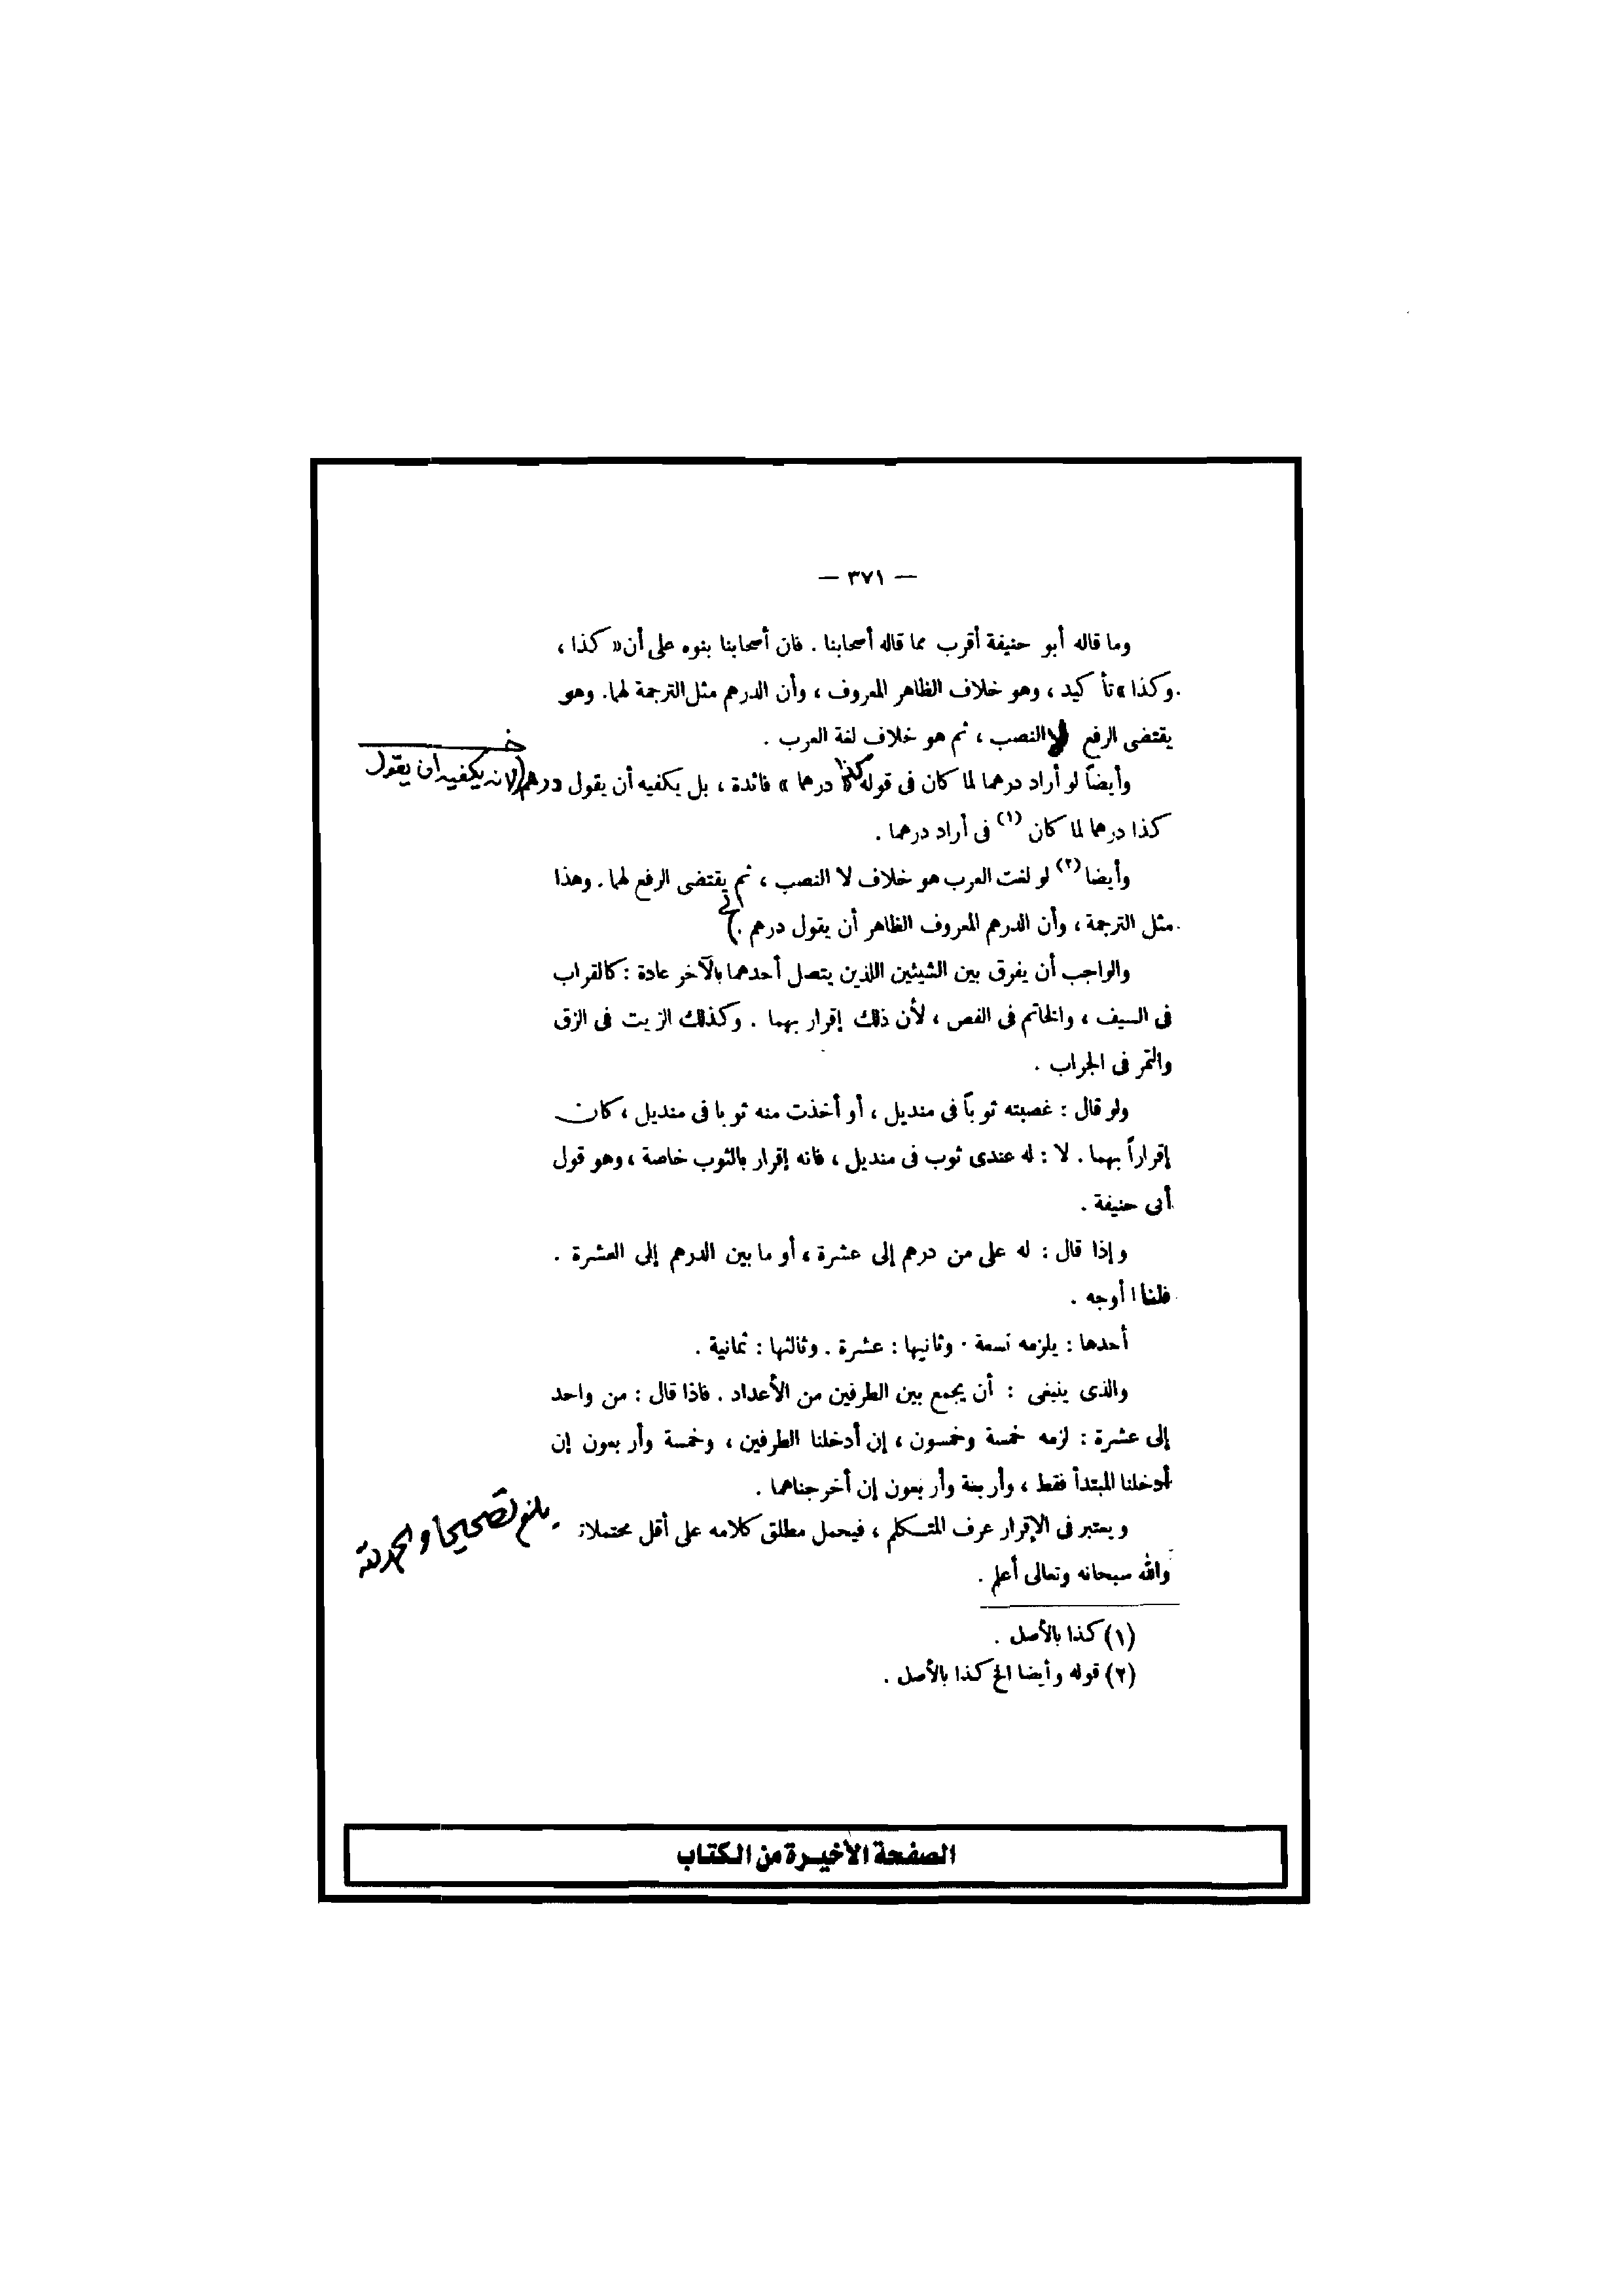 — ٣٧١ —
وما قاله أبو حنيفة أقرب مما قاله أصحابنا . فان أصحابنا بنوه على أن « كذا ،
وكذا » تأكيد ، وهو خلاف الظاهر المعروف ، وأن الدرهم مثل الترجمة لهما . وهو
يقتضى الرفع لا النصب ، ثم هو خلاف لغة العرب .
خـ
وأيضاً لو أراد درهما لما كان فى قوله كذا درهما » فائدة ، بل يكفيه أن يقول درهم (لانه يكفيه ان يقول
كذا درهما لما كان (١) فى أراد درهما .
وأيضا (٢) لو لغت العرب هو خلاف لا النصب ، ثم يقتضى الرفع لهما . وهذا
مثل الترجمة ، وأن الدرهم المعروف الظاهر أن يقول درهم . ) الى
والواجب أن يفرق بين الشيئين اللذين يتصل أحدهما بالآخر عادة : كالقراب
فى السيف ، والخاتم فى الفص ، لأن ذلك إقرار بهما . وكذلك الزيت فى الزق
والتمر فى الجراب .
ولو قال : غصبته ثوباً فى منديل ، أو أخذت منه ثوبا فى منديل ، كان
إقراراً بهما . لا : له عندى ثوب فى منديل ، فانه إقرار بالثوب خاصة ، وهو قول
أبى حنيفة .
وإذا قال : له على من درهم إلى عشرة ، أو ما بين الدرهم إلى العشرة .
فلنا أوجه .
أحدها : يلزمه تسعة . وثانيها : عشرة . وثالثها : ثمانية .
والذى ينبغى : أن يجمع بين الطرفين من الأعداد . فاذا قال : من واحد
إلى عشرة : لزمه خمسة وخمسون ، إن أدخلنا الطرفين ، وخمسة وأربعون إن
أدخلنا المبتدأ فقط ، وأربعة وأربعون إن أخرجناهما .
ويعتبر فى الإقرار عرف المتكلم ، فيحمل مطلق كلامه على أقل محتملاته
بلغ تصحيحا والحمد لله
والله سبحانه وتعالى أعلم .
(١) كذا بالأصل .
(٢) قوله وأيضا الخ كذا بالأصل .
الصفحة الأخيرة من الكتاب